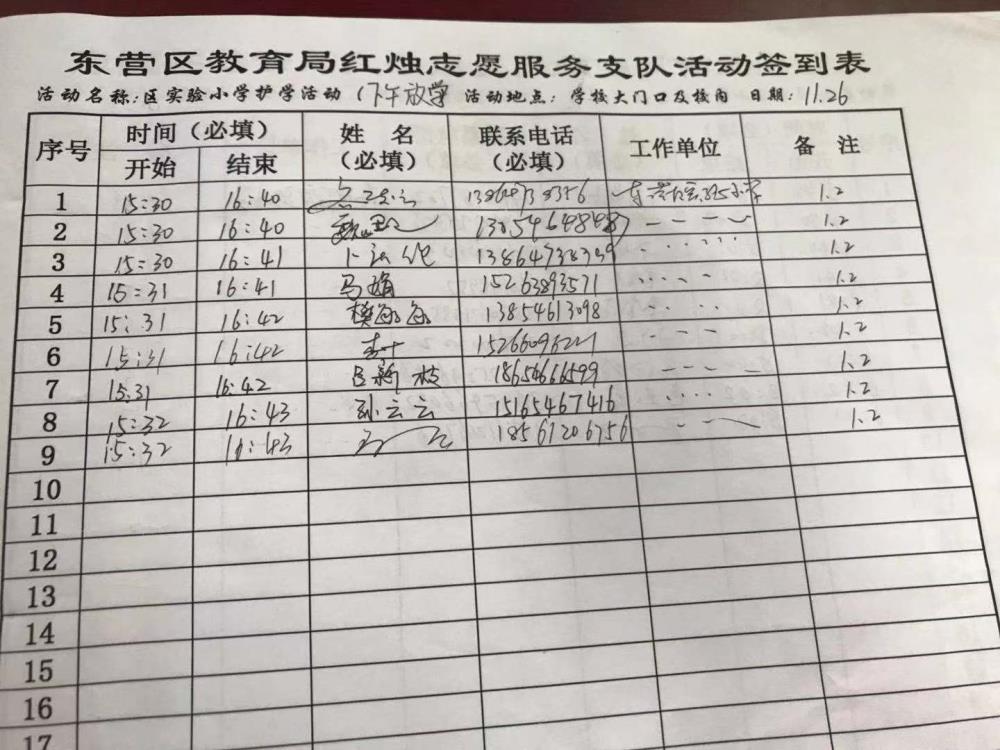 东营区教育局红烛志愿服务支队活动签到表
活动名称:区实验小学护学活动(下午放学 活动地点:学校大门口及校门 日期:11.26
序号 时间(必填) 姓 名 联系电话 工作单位 备 注
开始 结束 (必填) (必填)
1 15:30 16:40 1.2
2 15:30 16:40 1.2
3 15:30 16:41 13864738399 1.2
4 15:31 16:41 马娟 15263893571 1.2
5 15:31 16:42 13854613098 1.2
6 15:31 16:42 1.2
7 15:31 16:42 吕新枝 18654666599 1.2
8 15:32 16:43 孙云云 15165467416 1.2
9 15:32 16:43 18561206756
10
11
12
13
14
15
16
17